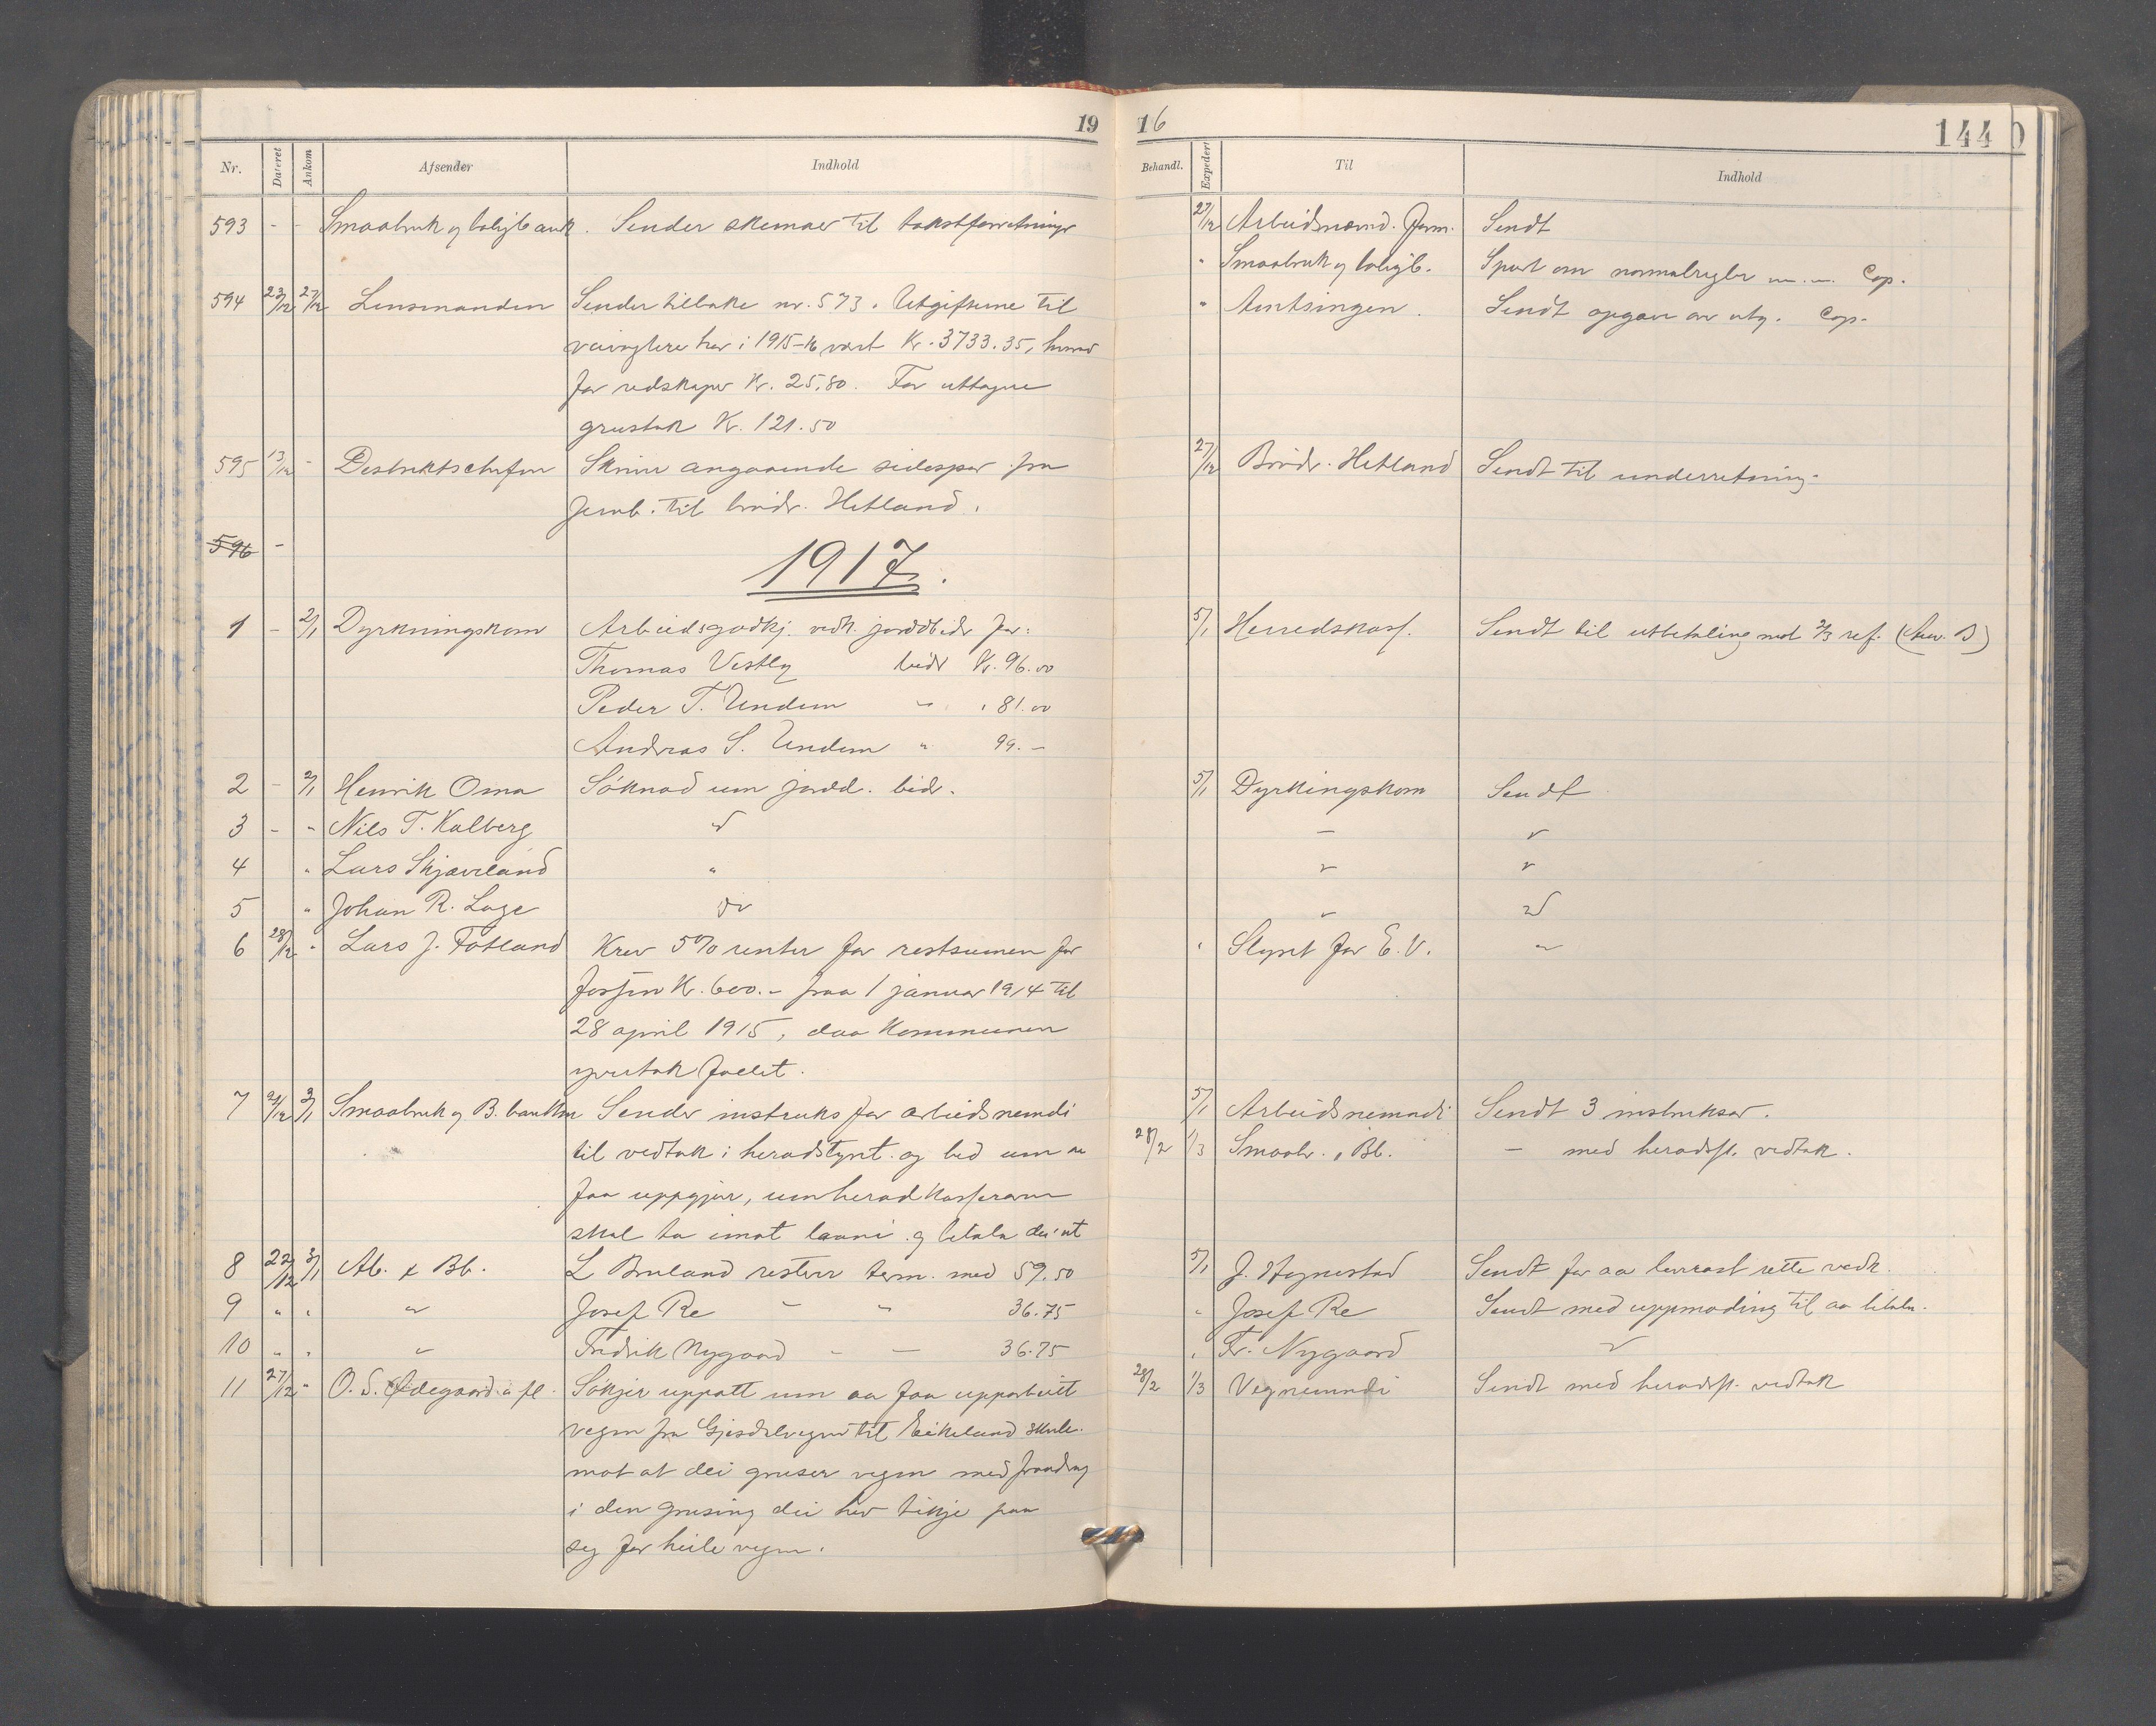 19
Nr. Dateret Ankom Afsender Indhold
593 - - Smaabruk og boligbank. Sender skemaer til takstforretninger
594 23/12 27/12 Lensmanden Sender tilbake nr. 573. Utgifterne til
veivoktere har i 1915-16 vært Kr. 3733.35, hvorav
for redskaper Kr. 25.80. For uttagne
grustak Kr. 121.50
595 13/12 - Destriktschefen Skriver angaaende sidespor fra
jernb. til brødr. Hetland.
596 -
1917.
1 - 2/1 Dyrkningskom Arbeidsgodkj. vedk. jorddbidr for:
Thomas Vestly bidr Kr. 96.00
Peder T. Undem " " 81.00
Andreas S. Undem " 99.-
2 - 2/1 Henrik Oma Søknad um jordd. bidr.
3 - " Nils T. Kalberg "
4 " Lars Skjæveland "
5 " Johan R. Lage "
6 28/12 " Lars J. Fotland Krev 5% renter for restsumen for
fossen Kr. 600.- fraa 1 januar 1914 til
28 april 1915, daa Kommunen
yvertok fallet.
7 21/12 3/1 Smaabruk og B. banken Sender instruks for arbeidsnemdi
til vedtak i heradstyret og bed um aa
faa uppgjør, um heradkasseraren
skal ta imot laani og betala dei ut
8 22/12 3/1 Ab. & Bb. L Bruland resterer term. med 59.50
9 " " " Josef Re - " 36.75
10 " " " Fredrik Nygaard - - 36.75
11 27/12 " O. S. Ødegaard o fl. Søkjer uppatt um aa faa upparbeitt
vegen fra Gjesdalvegen til Eikeland skule.
mot at dei gruser vegen med fraadrag
i den grusing dei hev tikje paa
seg for heile vegen.
16
144
Behandl. Expedert Til Indhold
27/12 Arbeidsnemd. Form. Sendt
" Smaabruk og boligb. Spurt om normalregler m.m. Cop.
" Amtsingen. Sendt opgave over utg. Cop.
27/12 Brødr. Hetland Sendt til underretning.
5/1 Herredskass. Sendt til utbetaling mot 2/3 ref.
5/1 Dyrkingskom Sendt
- "
" "
" "
" Styret for E.V. "
5/1 Arbeidsnemndi Sendt 3 instruksar.
28/2 1/3 Smaabr. & Bb. - med heradsst. vedtak.
5/1 J. Hognestad Sendt for aa levrast rette vedk.
" Josef Re Sendt med uppmoding til aa betala.
" Fr. Nygaard "
28/2 1/3 Vegnemndi Sendt med heradsst. vedtak